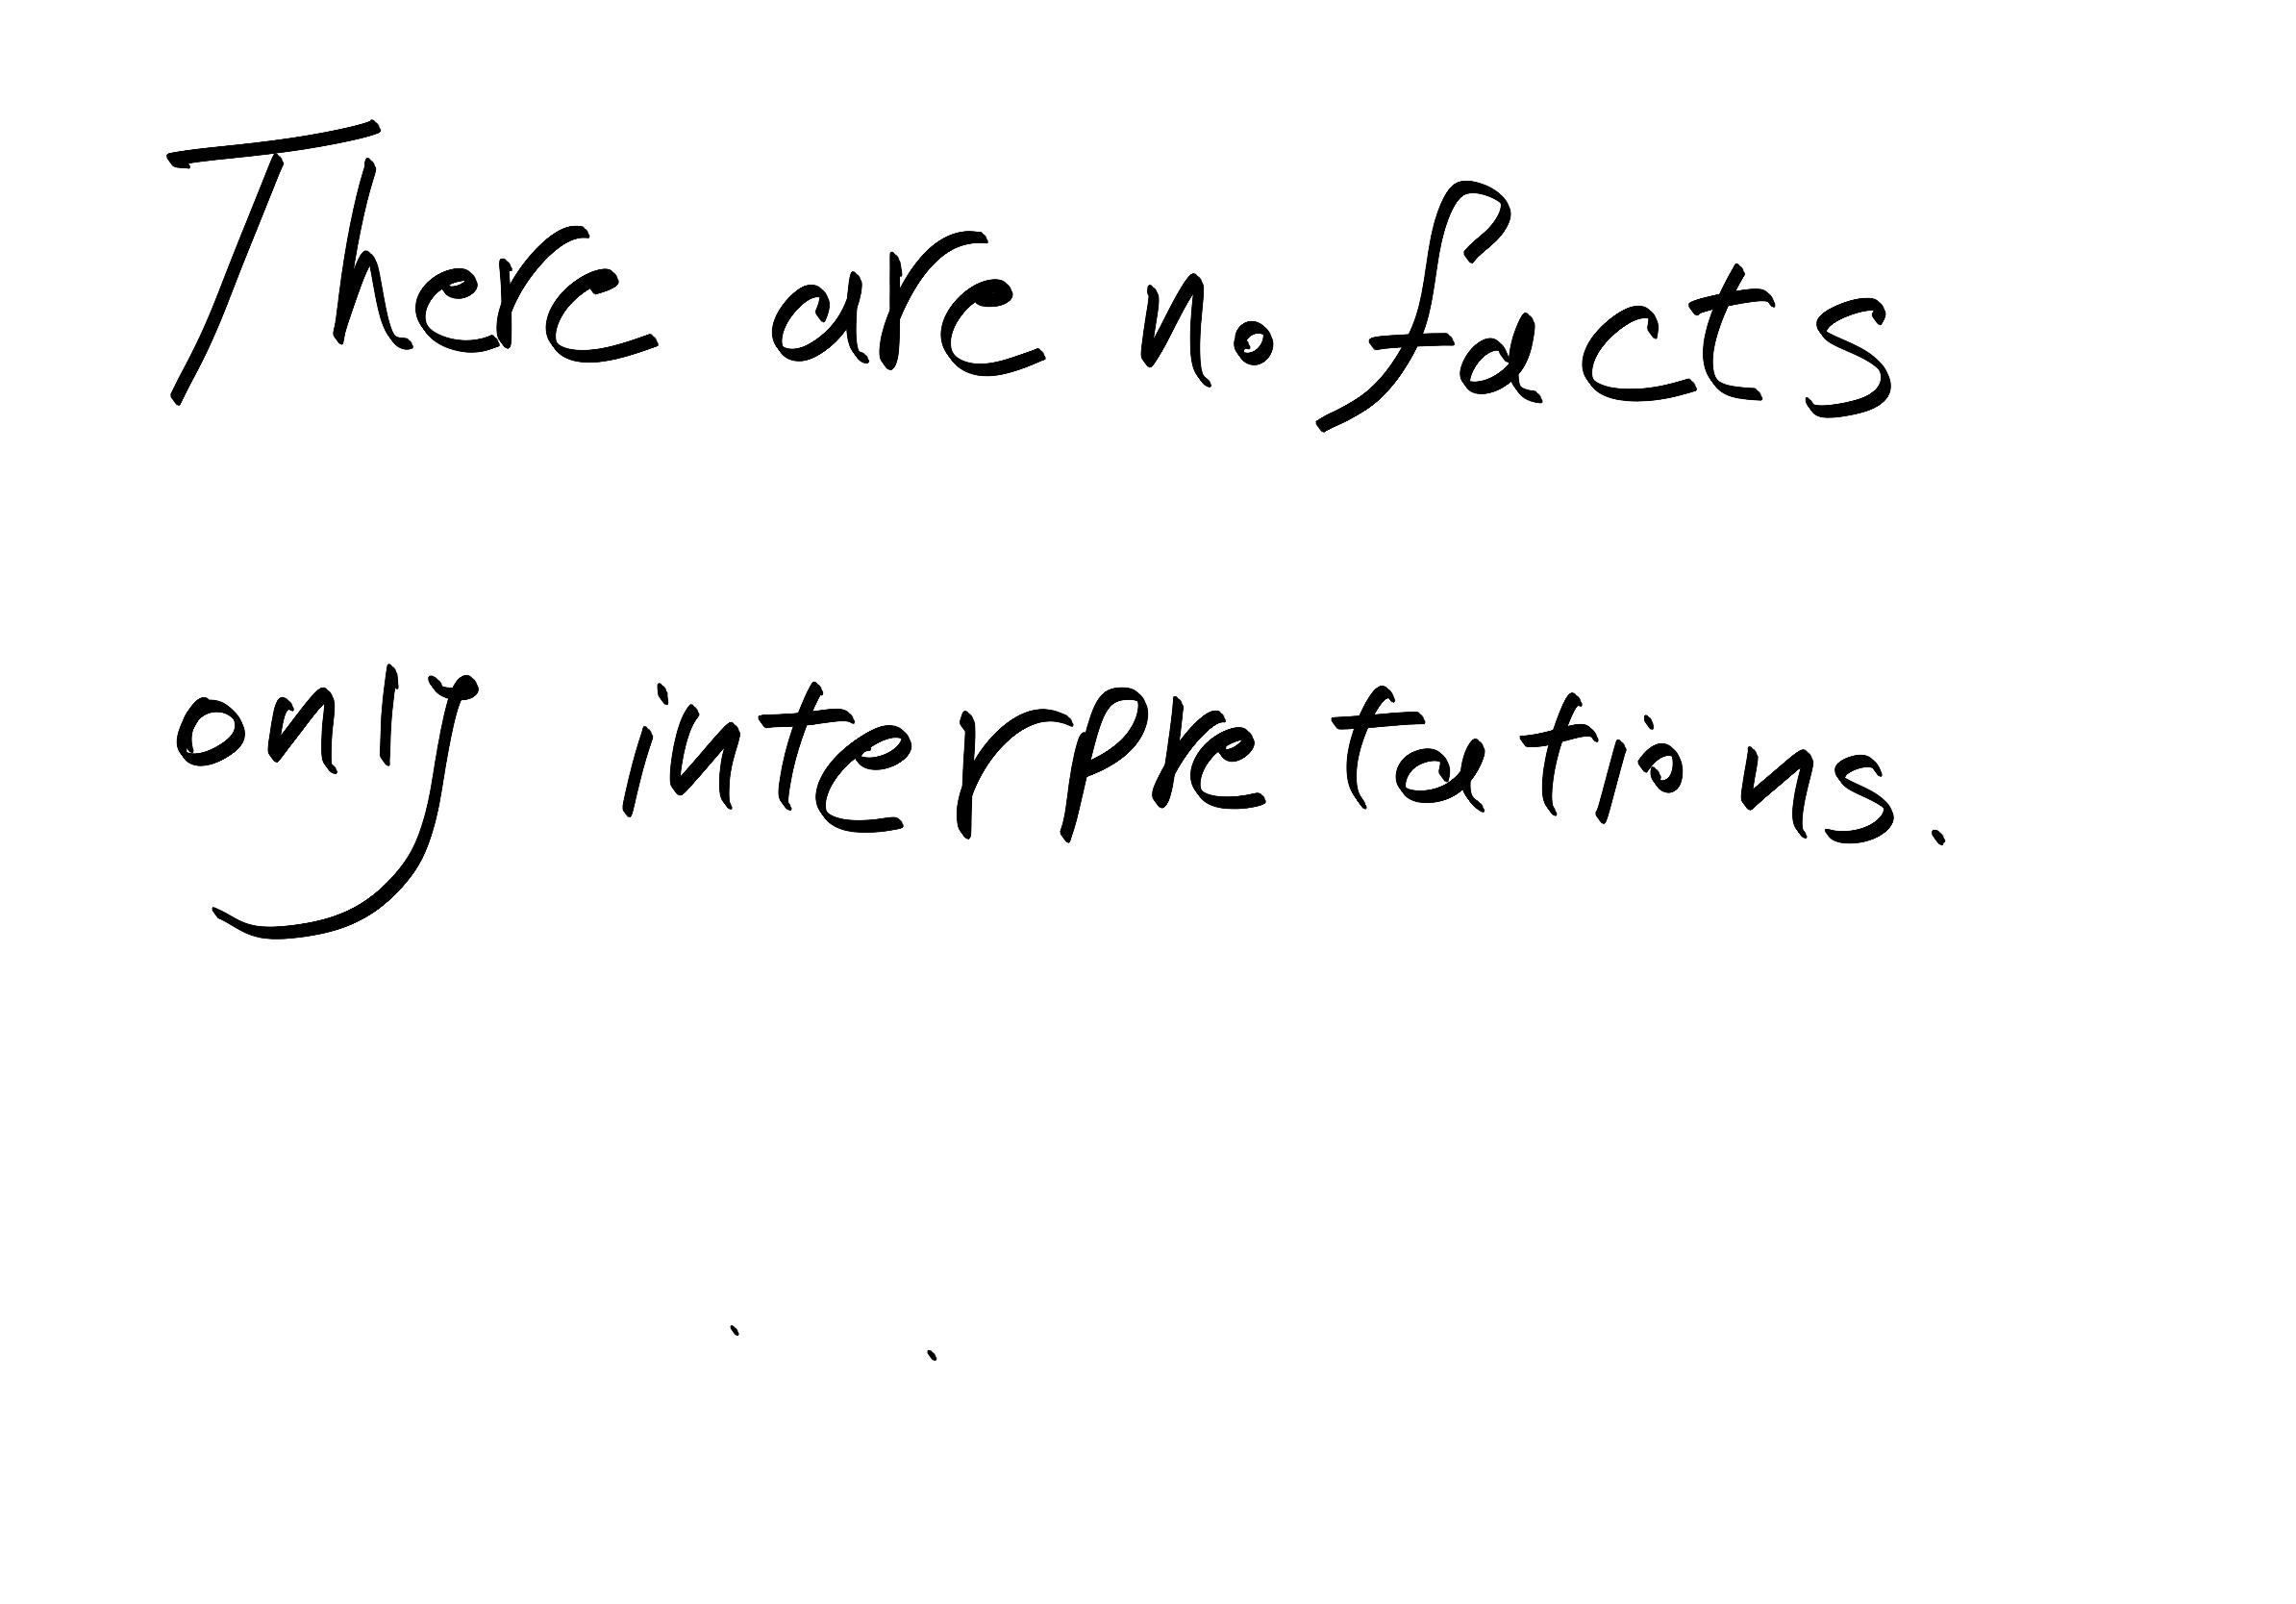 There are no facts
only interpretations.